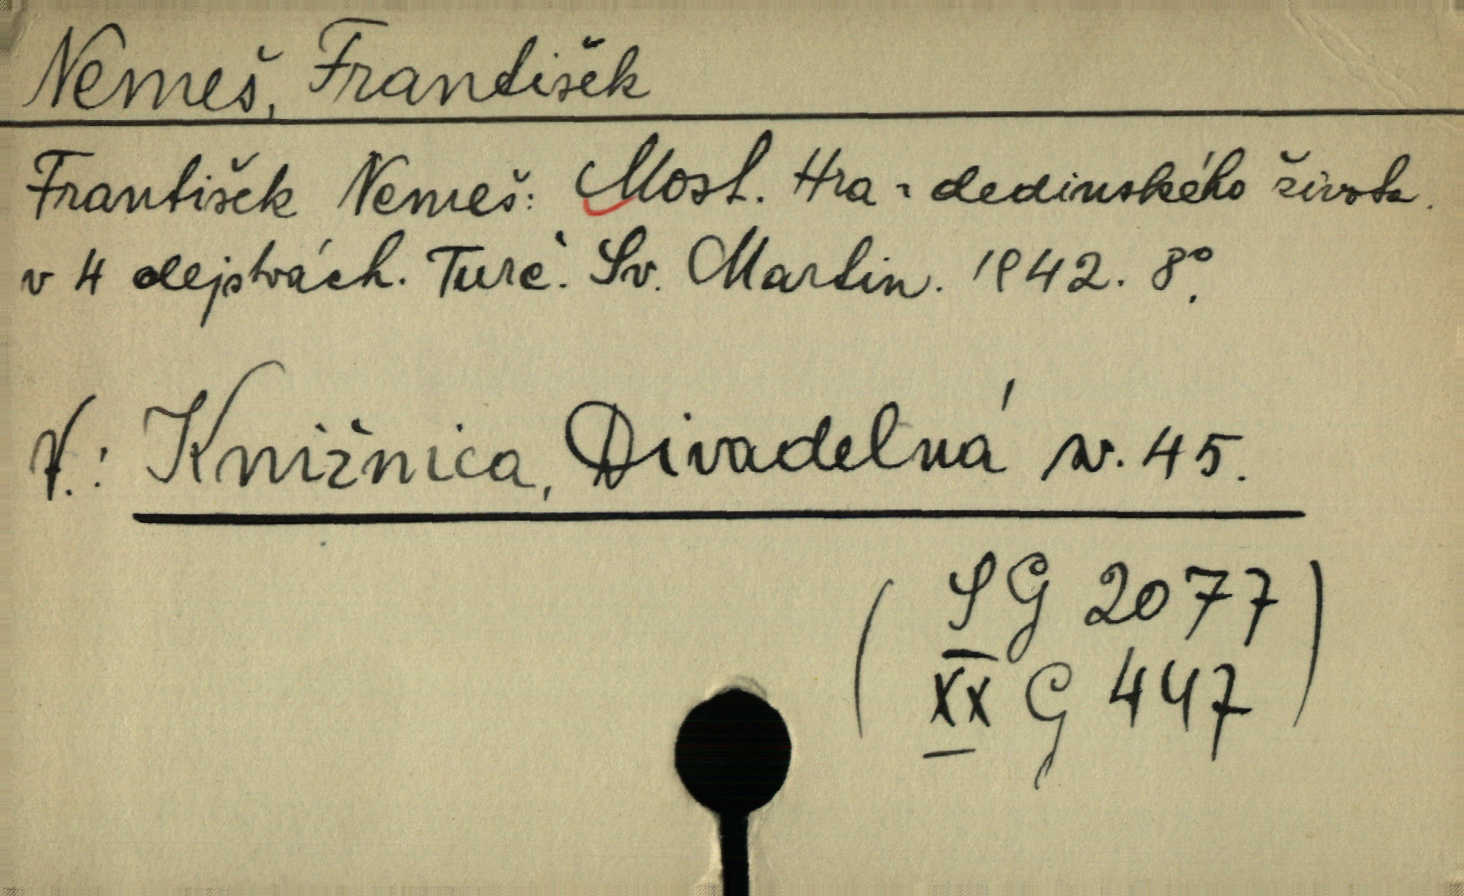 Nemeš, František
František Nemeš: Most. Hra z dedinského života.
v 4 dejstvách. Turč. Sv. Martin. 1942. 8°.
V.: Knižnica, Divadelná sv. 45.
( SG 2077
XX G 447 )